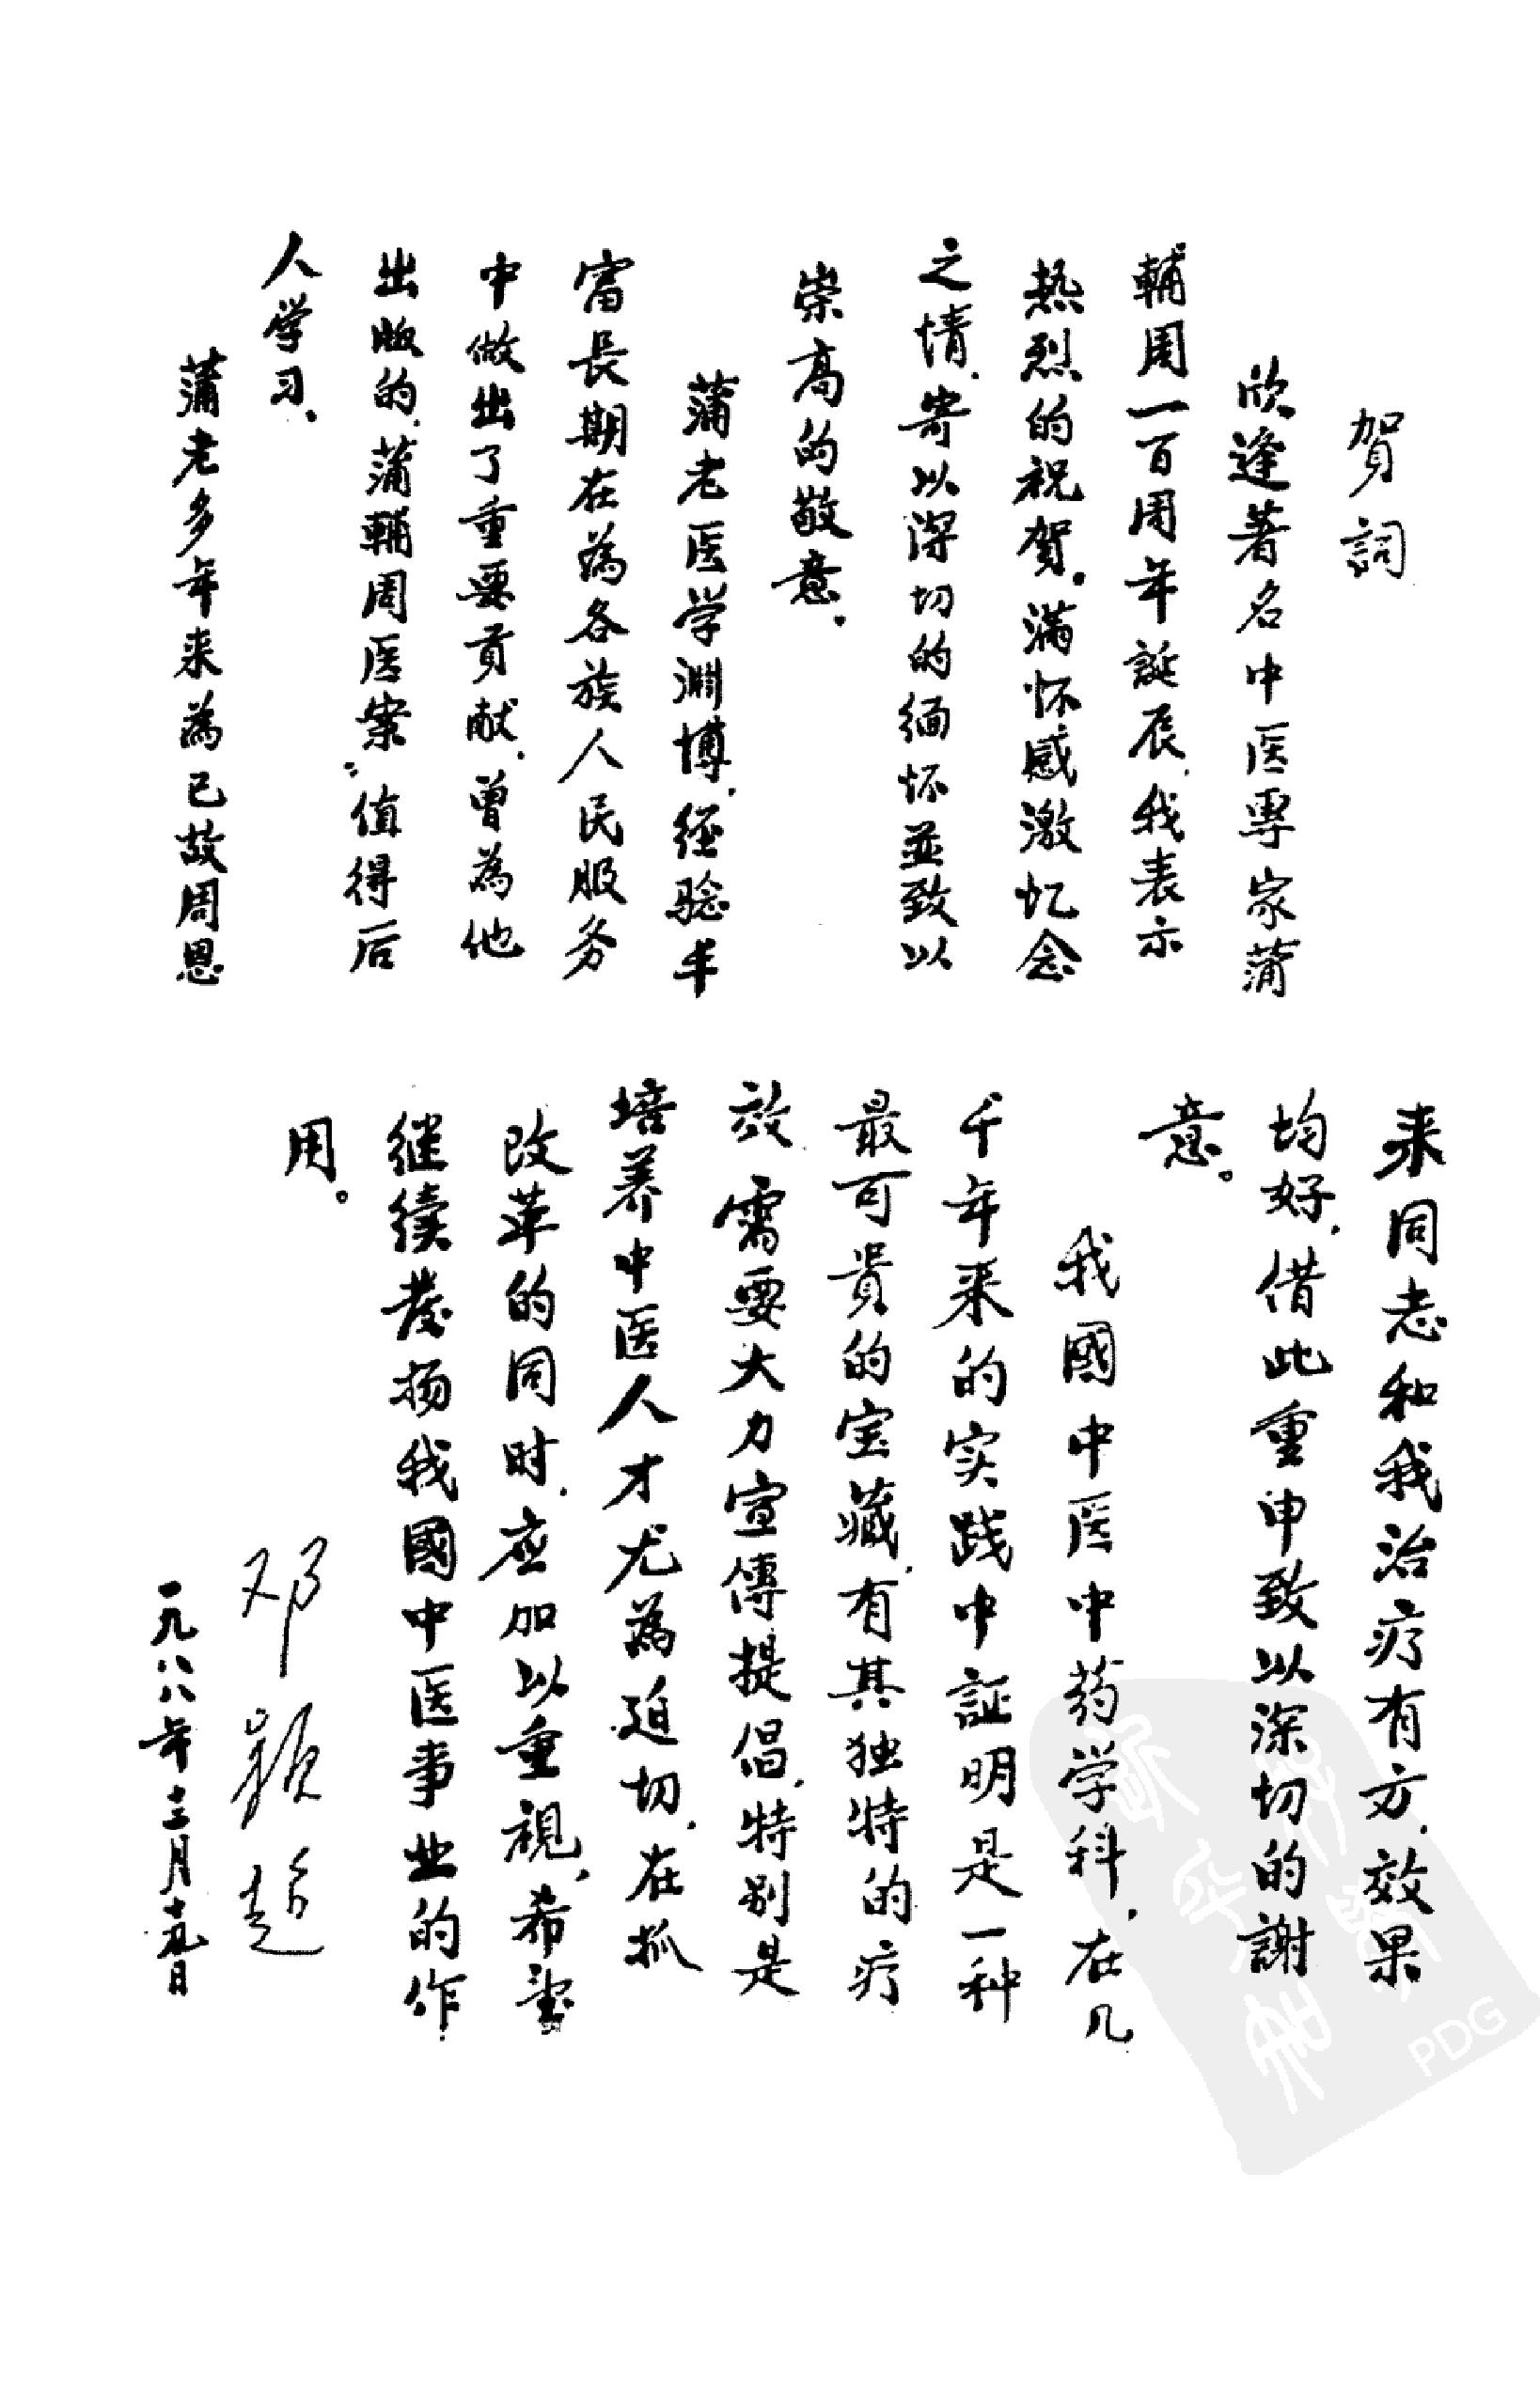 賀詞
欣逢著名中医專家蒲
輔周一百周年誕辰，我表示
热烈的祝贺。满怀感激忆念
之情，寄以深切的缅怀並致以
崇高的敬意。
蒲老医学渊博，经验丰
富長期在為各族人民服务
中做出了重要贡献，曾為他
出版的“蒲輔周医案”值得后
人学习。
蒲老多年来為已故周恩
来同志和我治疗有方，效果
均好，借此重申致以深切的謝
意。
我國中医中药学科，在几
千年来的实践中証明是一种
最可貴的宝藏，有其独特的疗
效 需要大力宣傳提倡，特别是
培养中医人才尤為迫切，在抓
改革的同时，应加以重視，希望
继续发扬我國中医事业的作
用。
邓颖超
一九八八年十二月十九日
PDG